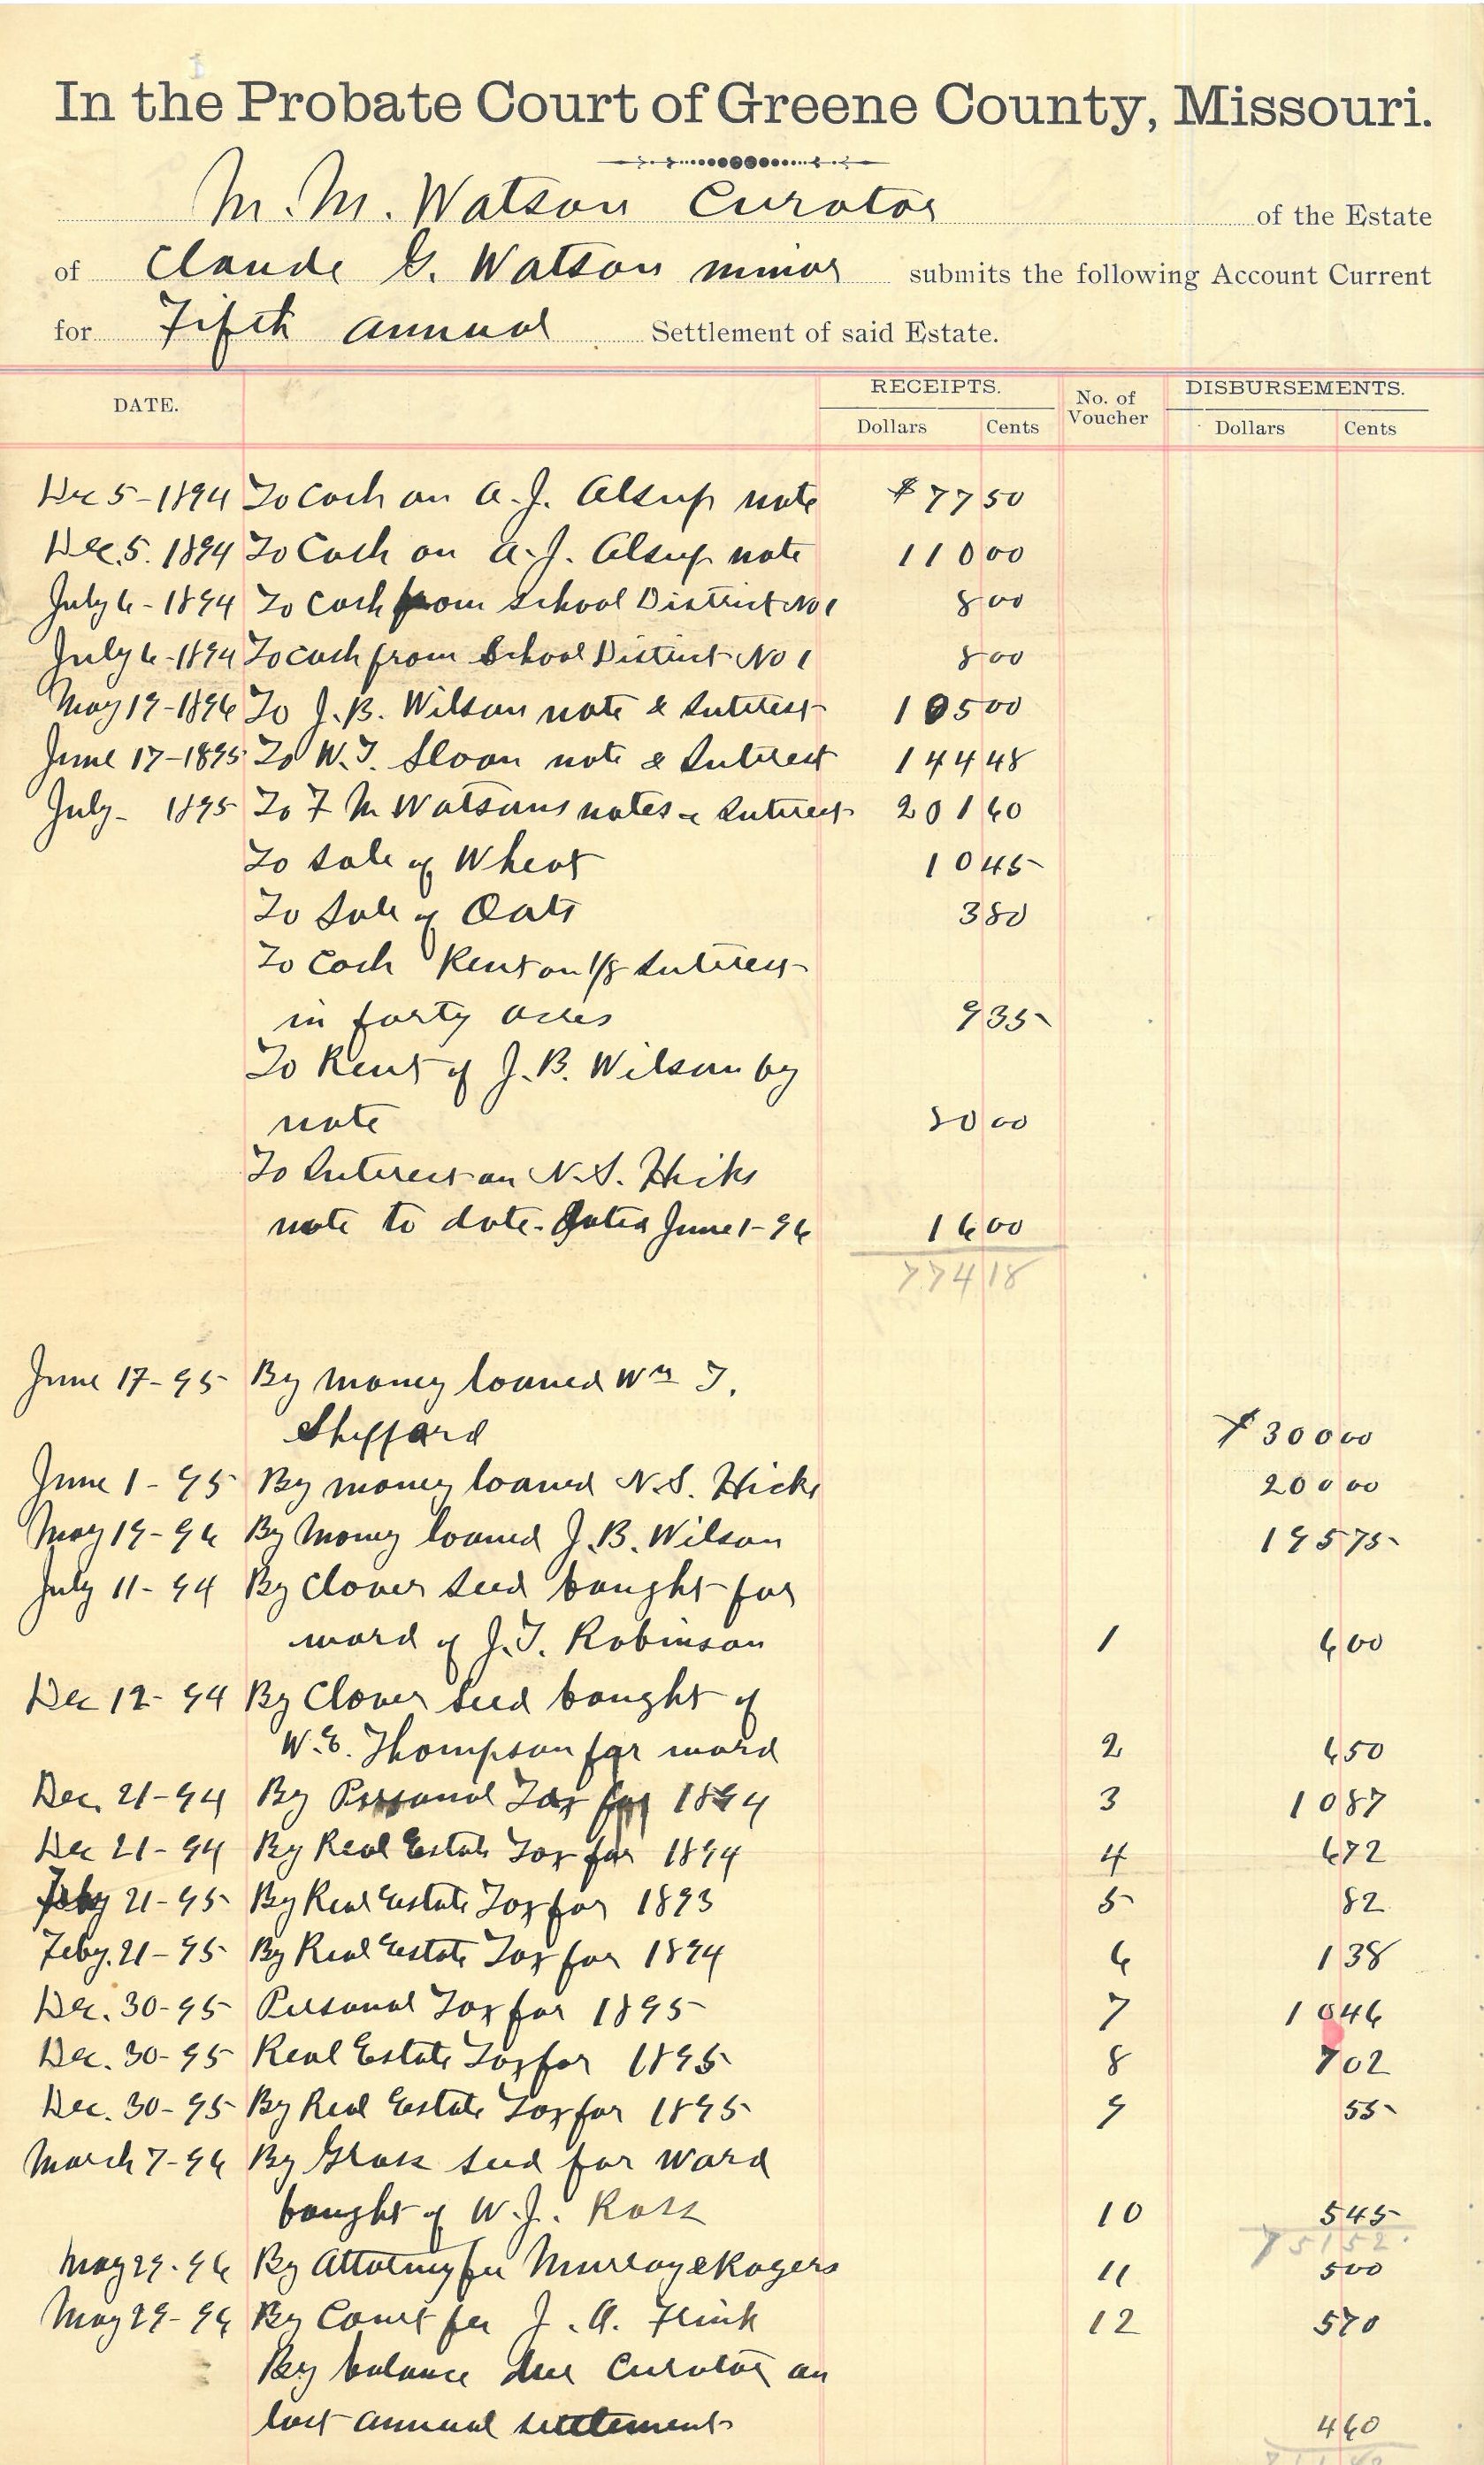 In the Probate Court of Greene County, Missouri.
M. M. Watson Curator of the Estate
of Claude G. Watson minor submits the following Account Current
for Fifth annual Settlement of said Estate.
DATE. RECEIPTS. No. of Voucher DISBURSEMENTS.
Dollars Cents Dollars Cents
Dec 5-1894 To Cash on A.J. Alsup note $77 50
Dec. 5. 1894 To Cash on A.J. Alsup note 110 00
July 6-1894 To Cash from School District No 1 8 00
July 6-1894 To cash from School District No 1 8 00
May 19-1896 To J.B. Wilson note & Interest 105 00
June 17-1895 To W.T. Sloan note & Interest 144 48
July- 1895 To F M Watsons notes & Interest 201 60
To Sale of Wheat 10 45
To Sale of Oats 3 80
To Cash Rent on 1/8 Interest
in forty acres 9 35
To Rent of J.B. Wilson by
note 80 00
To Interest on N.S. Hiks
note to date. Dated June 1-96 16 00
774 18
June 17-95 By money loaned Wm T.
Sheppard $300 00
June 1-95 By money loaned N.S. Hicks 200 00
May 19-96 By Money loaned J.B. Wilson 195 75
July 11-94 By Clover Seed bought for
ward of J.T. Robinson 1 6 00
Dec 12-94 By Clover Seed bought of
W.E. Thompson for ward 2 6 50
Dec. 21-94 By Personal Tax for 1894 3 10 87
Dec 21-94 By Real Estate Tax for 1894 4 6 72
Feby 21-95 By Real Estate Tax for 1893 5 82
Feby. 21-95 By Real Estate Tax for 1894 6 1 38
Dec. 30-95 Personal Tax for 1895 7 10 46
Dec. 30-95 Real Estate Tax for 1895 8 7 02
Dec. 30-95 By Real Estate Tax for 1895 9 55
March 7-96 By Grass Seed for Ward
bought of W.J. Ross 10 5 45
751 52
May 29-96 By Attorney fee Murray & Rogers 11 5 00
May 29-96 By Court fee J.A. Flink 12 5 70
By balance due Curator on
last annual settlement 4 60